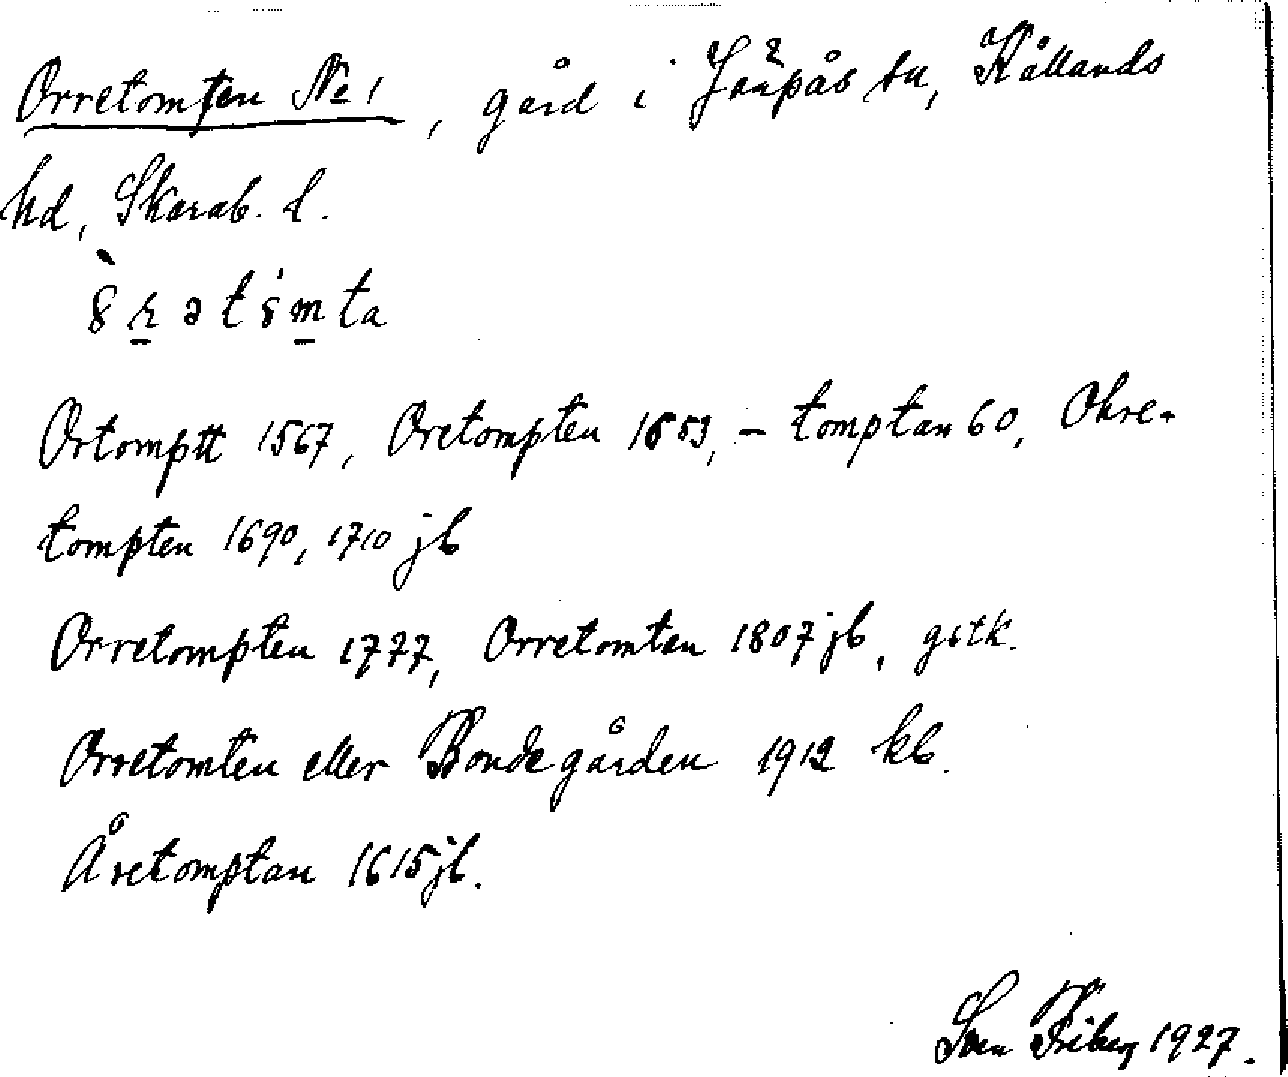 Orretomten No 1, gård i Järpås sn, Kållands
hd, Skarab. l.
Ortomptt 1567, Oretompten 1653, - tomptan 60, Ohre-
tompten 1690, 1710 jb
Orretompten 1777, Orretomten 1807 jb, gstk.
Orretomten eller Bondegården 1912 kb.
Åretomptan 1615 jb.
Sven Friberg 1927.